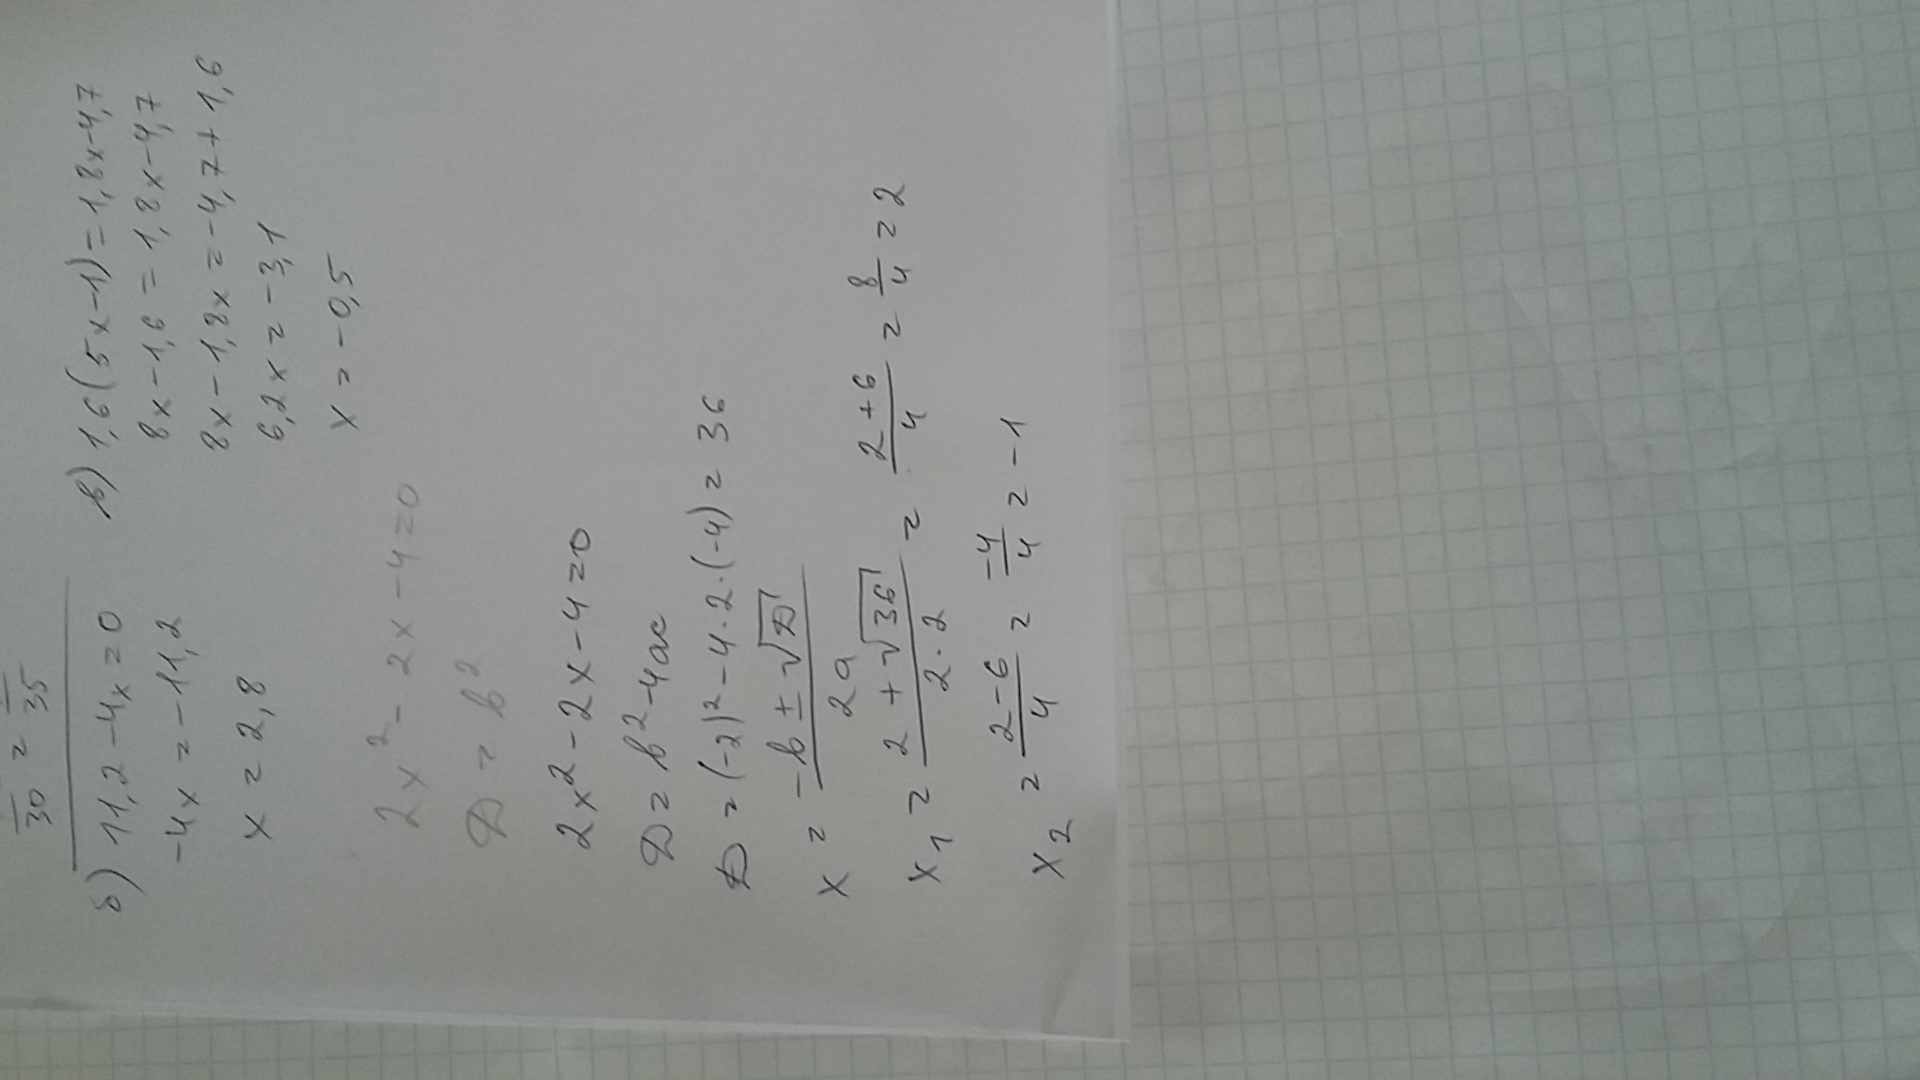 30 = 35
б) 11,2 - 4x = 0
-4x = -11,2
x = 2,8
в) 1,6(5x-1) = 1,8x-4,7
8x-1,6 = 1,8x-4,7
8x-1,8x = -4,7+1,6
6,2x = -3,1
x = -0,5
2x² - 2x - 4 = 0
D = b²
2x² - 2x - 4 = 0
D = b² - 4ac
D = (-2)² - 4·2·(-4) = 36
x = (-b ± √D)/2a
x₁ = (2 + √36)/(2·2) = (2+6)/4 = 8/4 = 2
x₂ = (2-6)/4 = -4/4 = -1